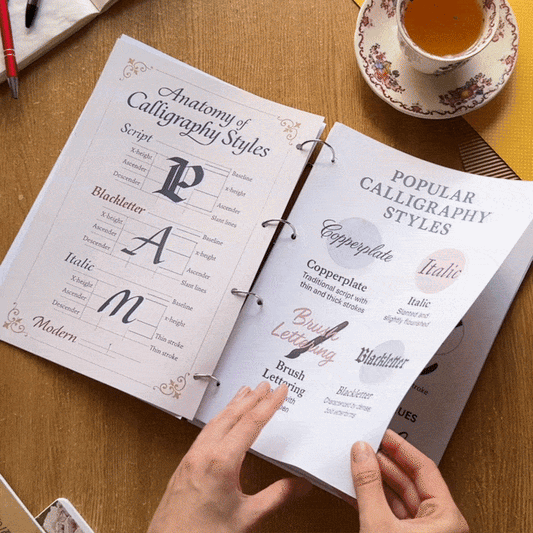 Anatomy of
Calligraphy Styles
Script
X-height
Ascender
Descender
P
Baseline
x-height
Ascender
Slant lines
Blackletter
X-height
Ascender
Descender
A
Baseline
x-height
Ascender
Slant lines
Italic
X-height
Ascender
Descender
m
Baseline
x-height
Thin stroke
Thin stroke
Modern
POPULAR
CALLIGRAPHY
STYLES
Copperplate
Copperplate
Traditional script with
thin and thick strokes
Italic
Italic
Slanted and
slightly flourished
Brush
Lettering
Brush
Lettering
with
Blackletter
Blackletter